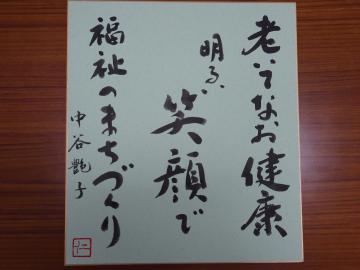 老いてなお健康
明るい
笑顔で
福祉のまちづくり
中谷艶子
仁